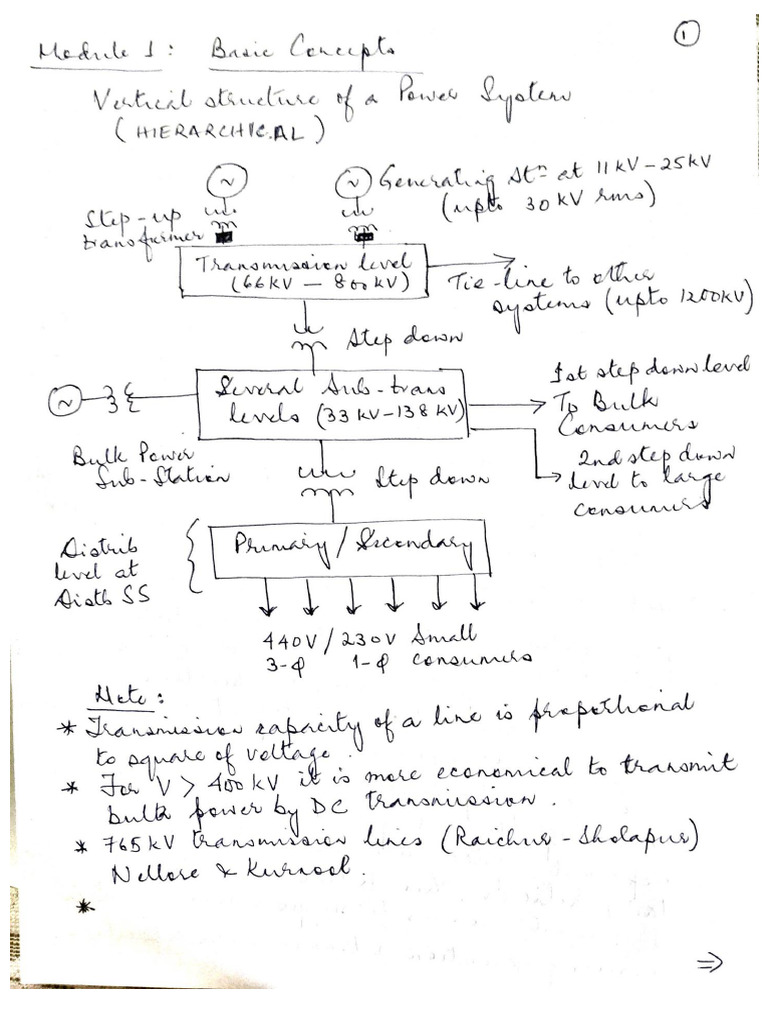 ①
Module 1: Basic Concepts
Vertical structure of a Power System
(HIERARCHICAL)
~
~
Generating Stn at 11kV-25kV
(upto 30kV rms)
Step-up
transformer
Transmission level
(66kV — 800kV)
Tie-line to other
systems (upto 1200kV)
Step down
~
Several Sub-trans
levels (33kV-138kV)
1st step down level
To Bulk
Consumers
2nd step down
level to large
consumers
Bulk Power
Sub-Station
Step down
Distrib
level at
Distb SS
Primary/Secondary
440V/230V Small
3-φ 1-φ consumers
Note:
* Transmission capacity of a line is proportional
to square of voltage.
* For V > 400kV it is more economical to transmit
bulk power by DC transmission.
* 765kV transmission lines (Raichur-Sholapur)
Nellore & Kurnool.
*
⇒